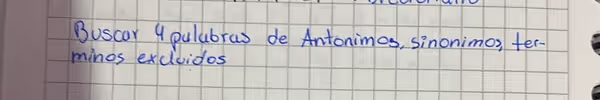 Buscar 4 palabras de Antonimos, sinonimos, ter-
minos excluidos